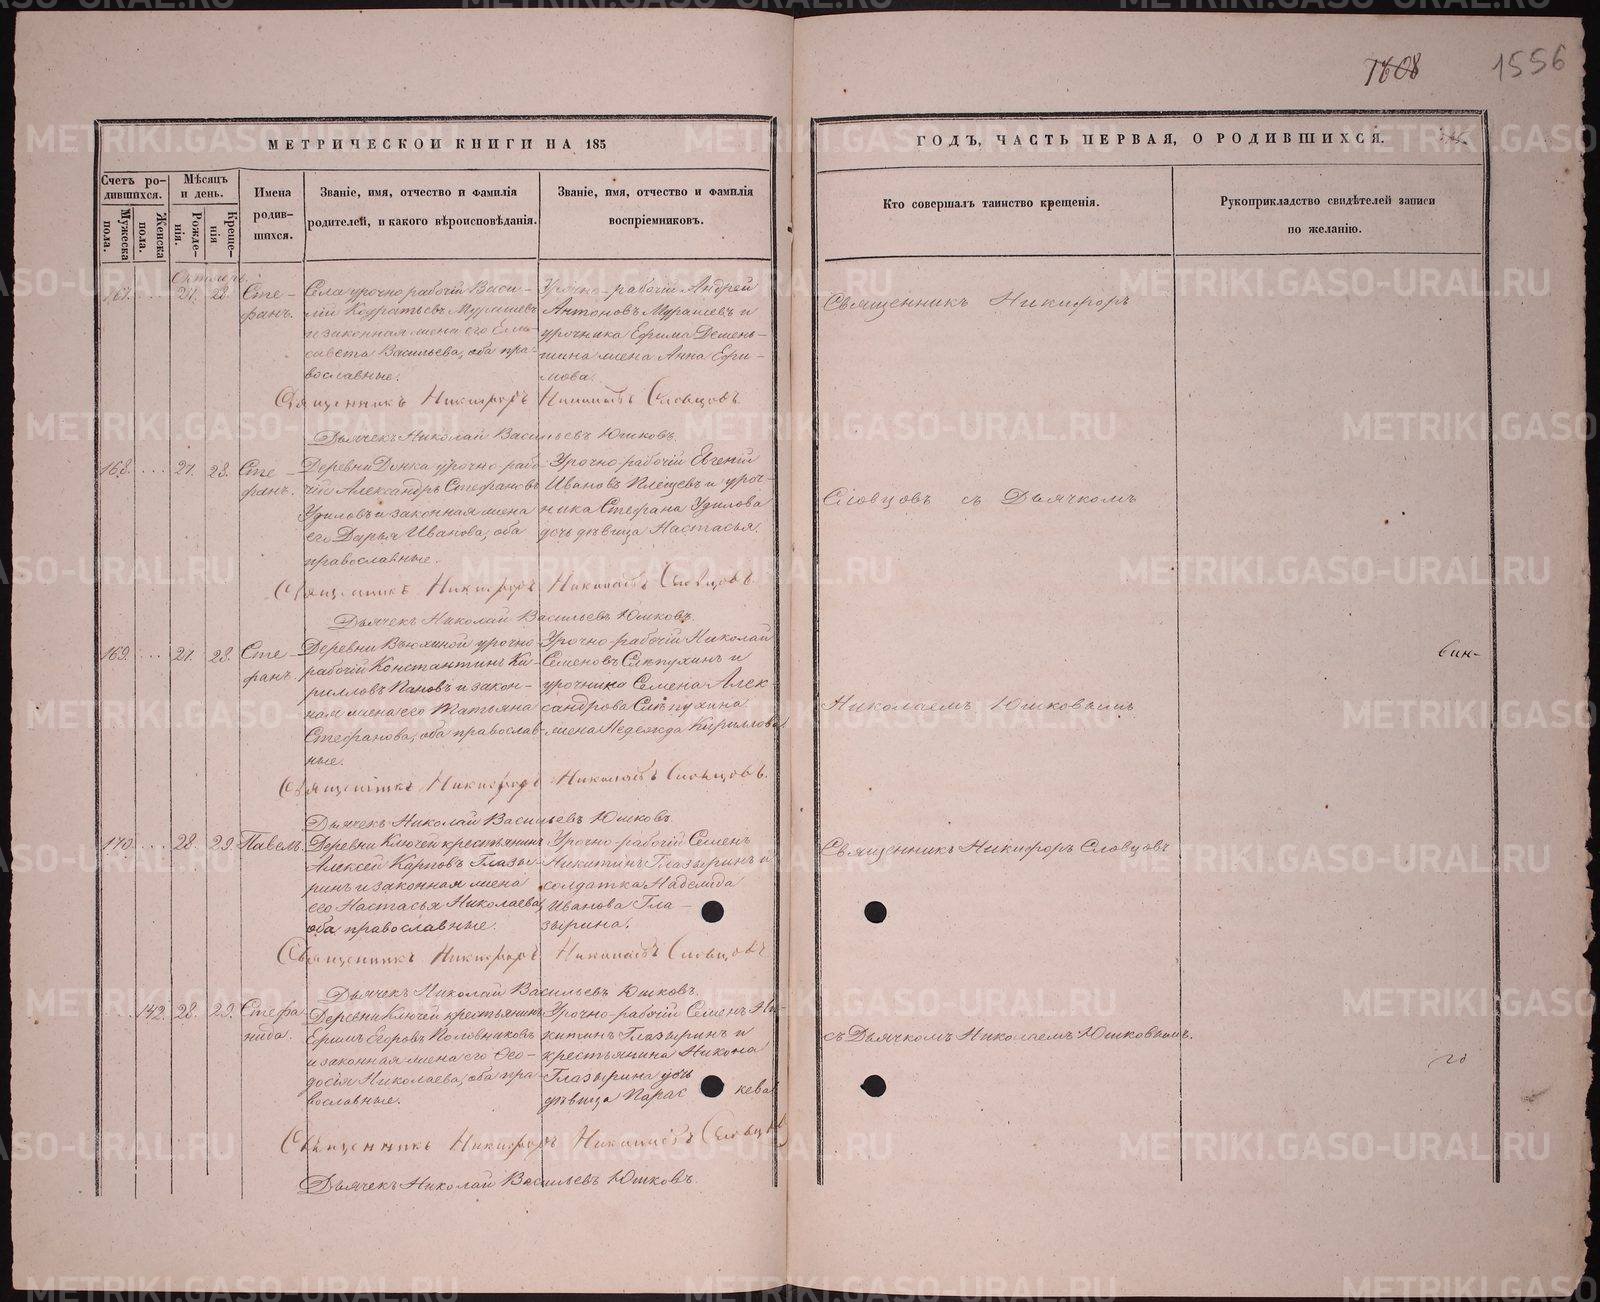 1608
1556
МЕТРИЧЕСКОЙ КНИГИ НА 185
ГОДЪ, ЧАСТЬ ПЕРВАЯ, О РОДИВШИХСЯ.
Счетъ ро-
дившихся.
Мужеска пола.
Женска пола.
Мѣсяцъ
и день.
Рожде-
нія.
Креще-
нія
Имена
родив-
шихся.
Званіе, имя, отчество и фамилія
родителей, и какого вѣроисповѣданія.
Званіе, имя, отчество и фамилія
воспріемниковъ.
Кто совершалъ таинство крещенія.
Рукоприкладство свидѣтелей записи
по желанію.
Октябрь
167. 27. 28. Сте-
фанъ.
Села урочно рабочій Васи-
лій Кодратьевъ Мурашевъ
и законная жена его Ели-
савета Васильева, оба пра-
вославные.
Урочно-рабочій Андрей
Антоновъ Мурашевъ и
урочника Ефима Демень-
шина жена Анна Ефи-
мова.
Священникъ Никифоръ
Священникъ Никифоръ Словцовъ.
Дьячекъ Николай Васильевъ Юшковъ.
168. 27. 28. Сте-
фанъ.
Деревни Донка урочно-рабо-
чій Александръ Стефановъ
Удиловъ и законная жена
его Дарья Иванова, оба
православные.
Урочно-рабочій Евгеній
Ивановъ Плещевъ и уроч-
ника Стефана Удилова
дочь дѣвица Настасья.
Словцовъ съ Дьячкомъ
Священникъ Никифоръ Словцовъ.
Дьячекъ Николай Васильевъ Юшковъ.
169. 27. 28. Сте-
фанъ.
Деревни Вьюхиной урочно-
рабочій Константинъ Ки-
рилловъ Пановъ и закон-
ная жена его Татьяна
Стефанова, оба православ-
ные.
Урочно-рабочій Николай
Семеновъ Слѣпухинъ и
урочника Семена Алек-
сандрова Слѣпухина
жена Надежда Кириллова
Николаемъ Юшковымъ
Священникъ Никифоръ Словцовъ.
Дьячекъ Николай Васильевъ Юшковъ.
170. 28. 29. Павелъ.
Деревни Ключей крестьянинъ
Алексѣй Карповъ Глазы-
ринъ и законная жена
его Настасья Николаева,
оба православные.
Урочно-рабочій Семенъ
Никитинъ Глазыринъ и
солдатка Надежда
Иванова Гла-
зырина.
Священникъ Никифоръ Словцовъ
Священникъ Никифоръ Словцовъ
Дьячекъ Николай Васильевъ Юшковъ.
142. 28. 29. Стефа-
нида.
Деревни Ключей крестьянинъ
Ефимъ Егоровъ Половниковъ
и законная жена его Ѳео-
досія Николаева, оба пра-
вославные.
Урочно-рабочій Семенъ Ни-
китинъ Глазыринъ и
крестьянина Никона
Глазырина дочь
дѣвица Парас кева
съ Дьячкомъ Николаемъ Юшковымъ.
Священникъ Никифоръ Словцовъ
Дьячекъ Николай Васильевъ Юшковъ.
METRIKI.GASO-URAL.RU